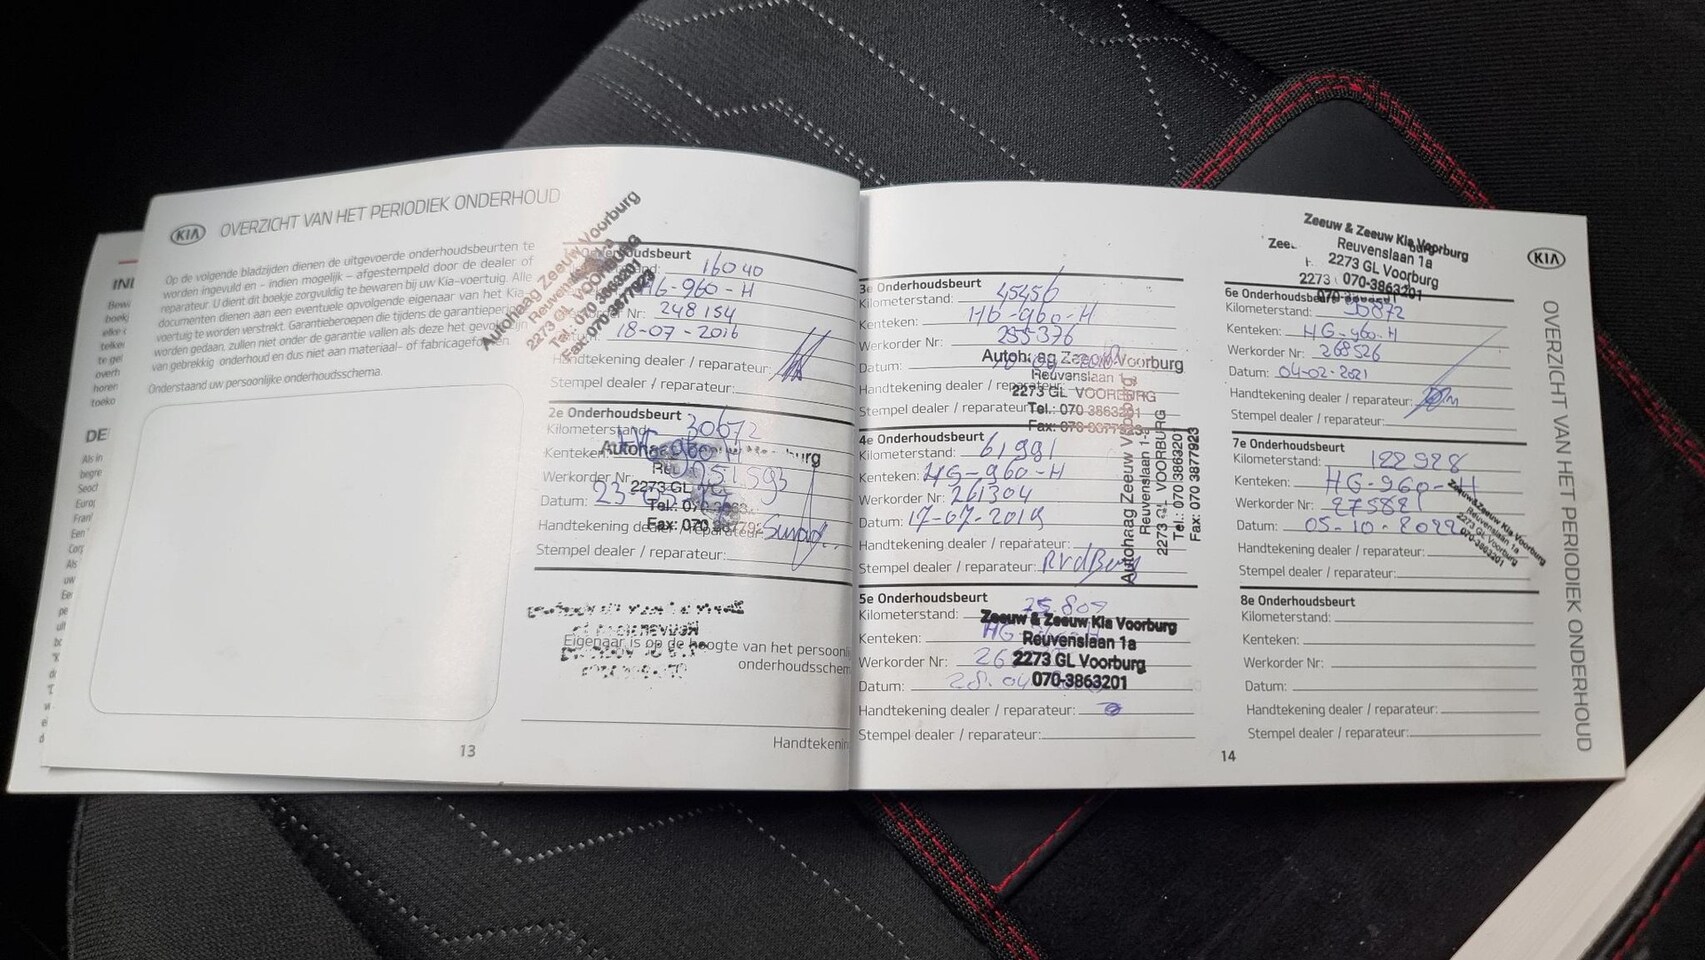 KIA OVERZICHT VAN HET PERIODIEK ONDERHOUD
Op de volgende bladzijden dienen de uitgevoerde onderhoudsbeurten te
worden ingevuld en - indien mogelijk - afgestempeld door de dealer of
reparateur. U dient dit boekje zorgvuldig te bewaren bij uw Kia-voertuig. Alle
documenten dienen aan een eventuele opvolgende eigenaar van het Kia-
voertuig te worden verstrekt. Garantieberoepen die tijdens de garantieperi
worden gedaan, zullen niet onder de garantie vallen als deze het gevolg zijn
van gebrekkig onderhoud en dus niet aan materiaal- of fabricagefo
Onderstaand uw persoonlijke onderhoudsschema.
13
Onderhoudsbeurt
16040
HG-960-H
Nr: 248154
18-07-2016
Handtekening dealer / reparateur:
Stempel dealer / reparateur:
Autohaag Zeeuw Voorburg
2273 GL VOORBURG
Tel.: 070 3863201
Fax: 070 3877923
2e Onderhoudsbeurt
Kilometerstand: 30672
Kenteken:
Werkorder Nr: 251593
Datum:
Handtekening dealer / reparateur:
Stempel dealer / reparateur:
2273 GL
Tel.: 070
Fax: 070
Eigenaar is op de hoogte van het persoonli
onderhoudsschem
Handtekenin
3e Onderhoudsbeurt
Kilometerstand: 45456
Kenteken: HG-960-H
Werkorder Nr: 255376
Datum:
Handtekening dealer / reparateur:
Stempel dealer / reparateur:
Autohaag Zeeuw Voorburg
Reuvenslaan 1
2273 GL VOORBURG
Tel.: 070 3863201
Fax: 070 3877923
4e Onderhoudsbeurt
Kilometerstand: 61991
Kenteken: HG-960-H
Werkorder Nr: 261304
Datum: 17-07-2019
Handtekening dealer / reparateur:
Stempel dealer / reparateur:
Autohaag Zeeuw Voorburg
Reuvenslaan 1-
2273 GL VOORBURG
Tel.: 070 3863201
Fax: 070 3877923
5e Onderhoudsbeurt
Kilometerstand:
Kenteken:
Werkorder Nr: 26
Datum: 28.04
Handtekening dealer / reparateur:
Stempel dealer / reparateur:
Zeeuw & Zeeuw Kia Voorburg
Reuvenslaan 1a
2273 GL Voorburg
070-3863201
14
Zeeuw & Zeeuw Kia Voorburg
Reuvenslaan 1a
2273 GL Voorburg
070-3863201
6e Onderhoudsbeurt
Kilometerstand:
Kenteken: HG-960-H
Werkorder Nr: 268526
Datum: 04-02-2021
Handtekening dealer / reparateur:
Stempel dealer / reparateur:
7e Onderhoudsbeurt
Kilometerstand: 122928
Kenteken: HG-960-H
Werkorder Nr: 275821
Datum: 05-10-2022
Handtekening dealer / reparateur:
Stempel dealer / reparateur:
Zeeuw & Zeeuw Kia Voorburg
Reuvenslaan 1a
2273 GL Voorburg
070-3863201
8e Onderhoudsbeurt
Kilometerstand:
Kenteken:
Werkorder Nr:
Datum:
Handtekening dealer / reparateur:
Stempel dealer / reparateur:
KIA OVERZICHT VAN HET PERIODIEK ONDERHOUD